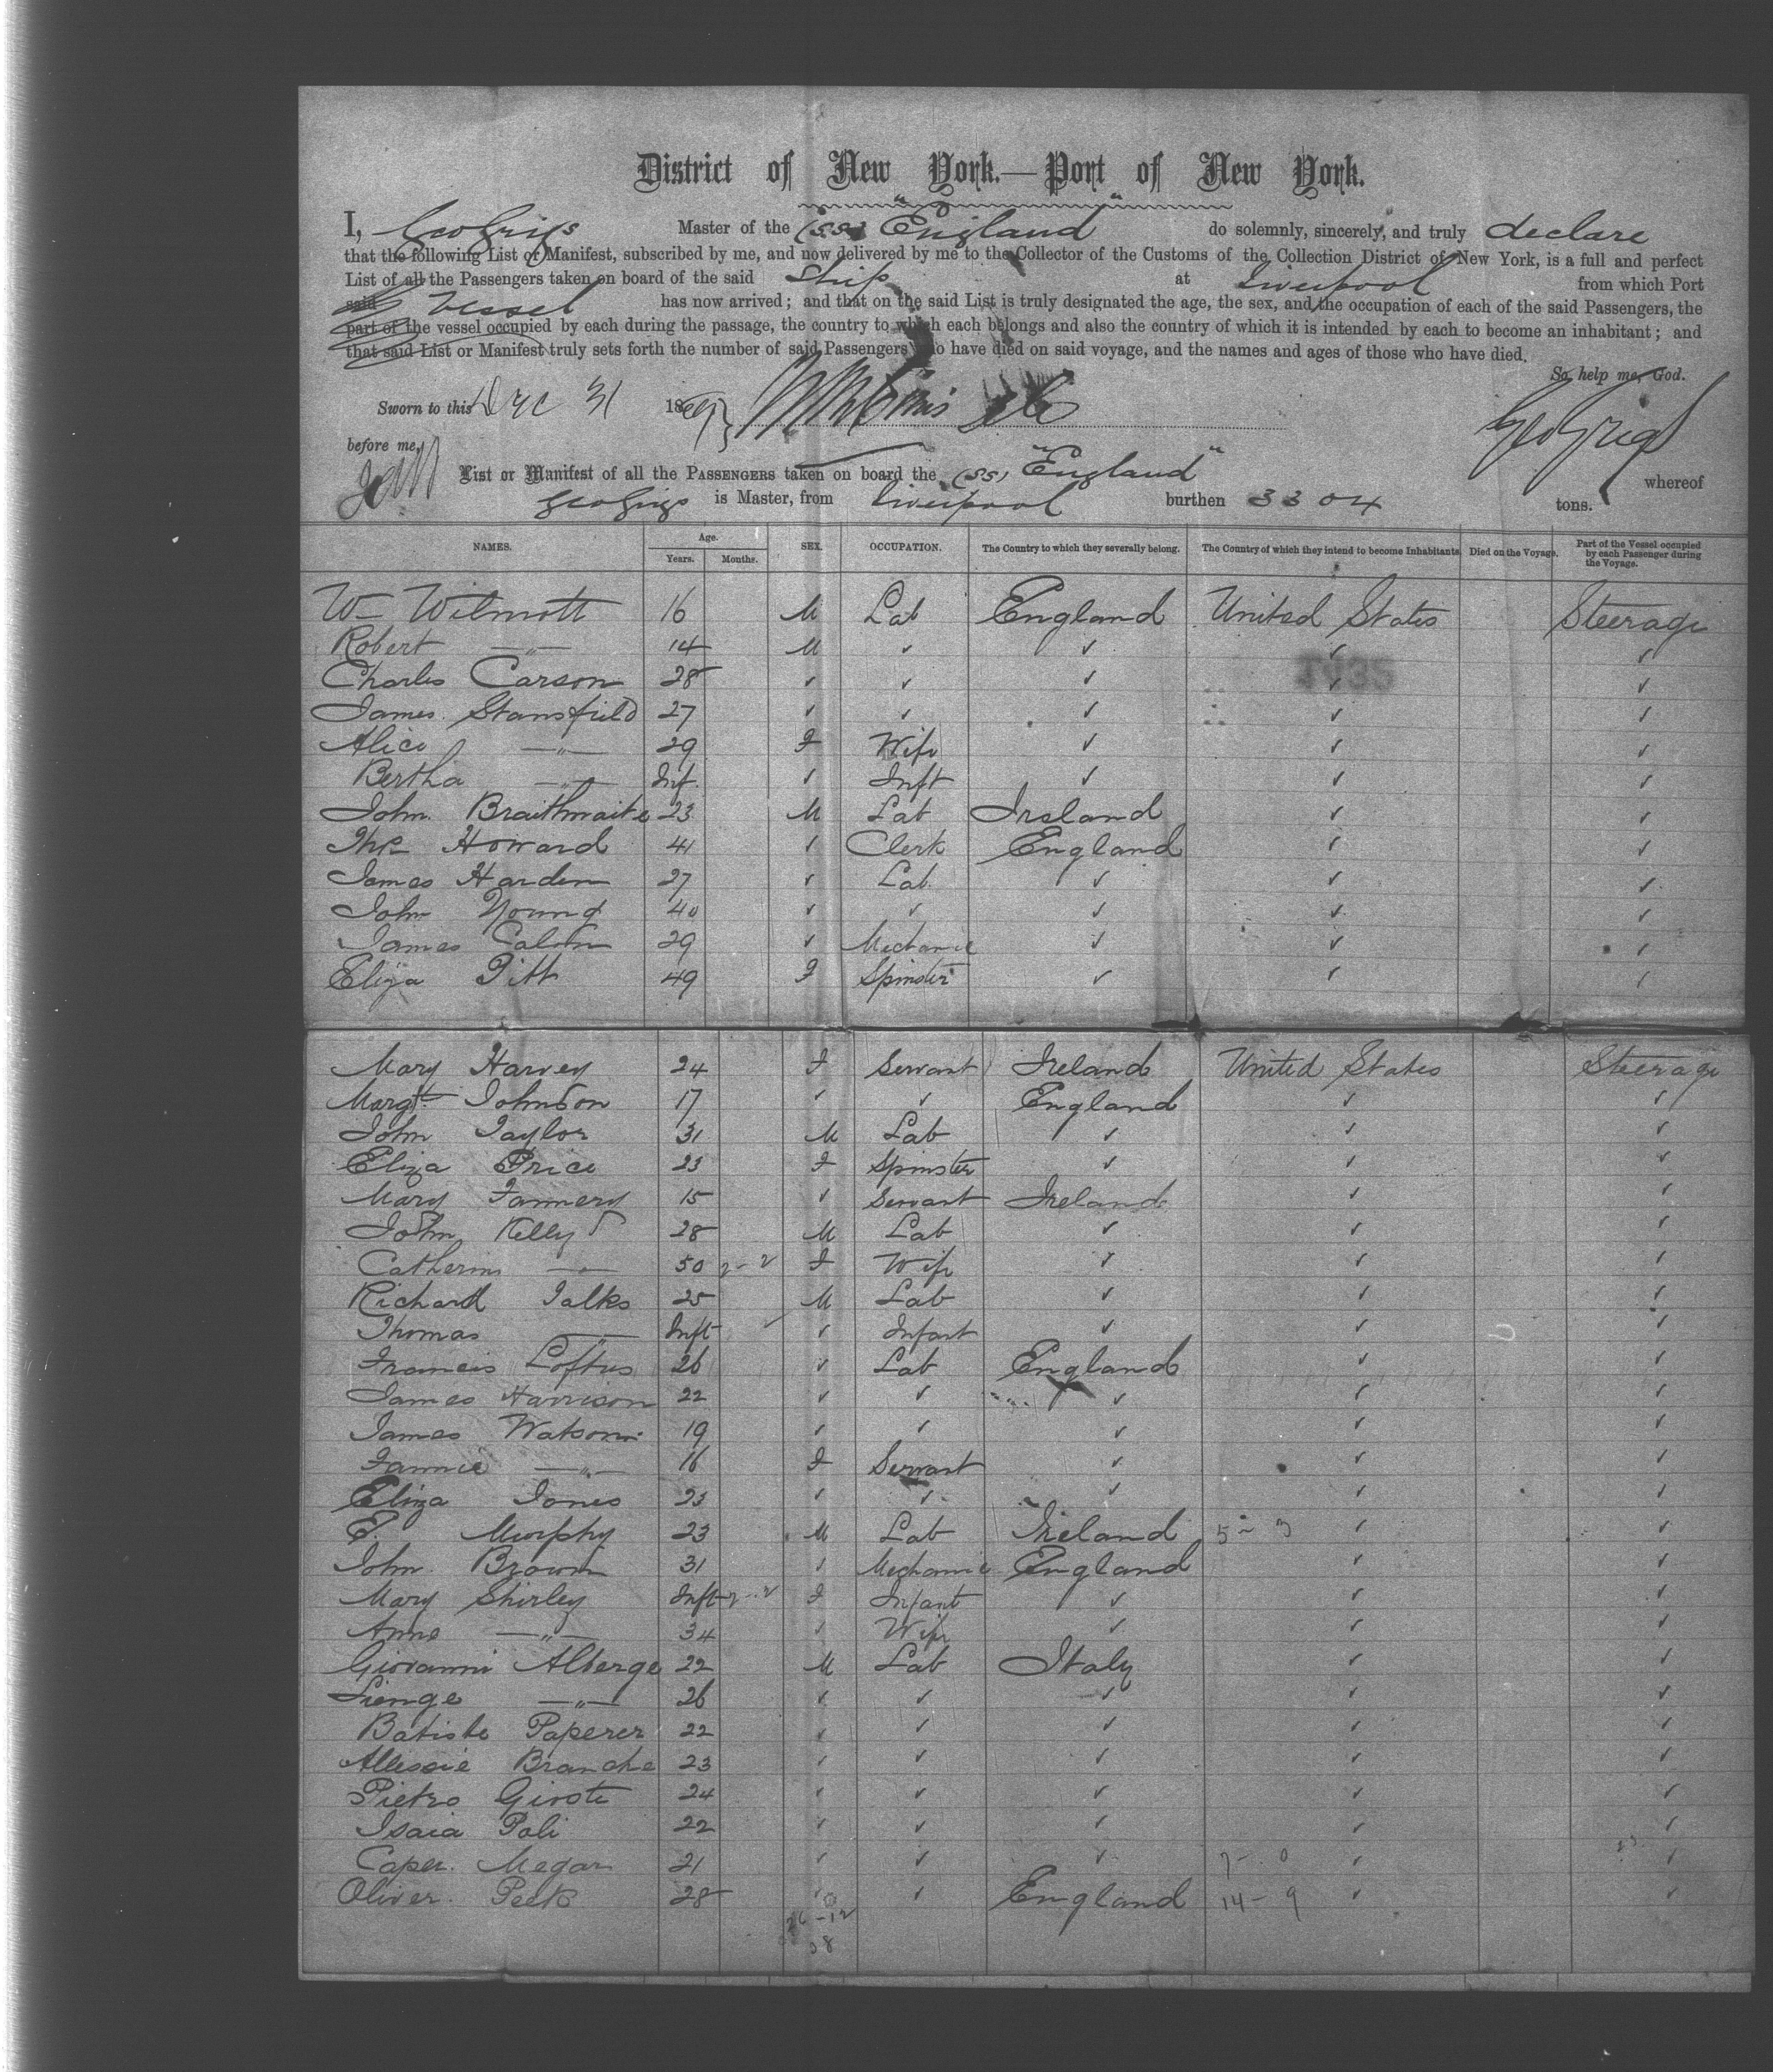 District of New York.— Port of New York.
I, Geo Grigs Master of the (SS) "England" do solemnly, sincerely, and truly declare
that the following List or Manifest, subscribed by me, and now delivered by me to the Collector of the Customs of the Collection District of New York, is a full and perfect
List of all the Passengers taken on board of the said Ship at Liverpool from which Port
said Vessel has now arrived; and that on the said List is truly designated the age, the sex, and the occupation of each of the said Passengers, the
part of the vessel occupied by each during the passage, the country to which each belongs and also the country of which it is intended by each to become an inhabitant; and
that said List or Manifest truly sets forth the number of said Passengers who have died on said voyage, and the names and ages of those who have died.
So help me, God.
Sworn to this Dec 31 1869 Geo Grigs
before me,
List or Manifest of all the PASSENGERS taken on board the (SS) "England" whereof
Geo Grigs is Master, from Liverpool burthen 3304 tons.
NAMES. Age. Years. Months. SEX. OCCUPATION. The Country to which they severally belong. The Country of which they intend to become Inhabitants. Died on the Voyage. Part of the Vessel occupied by each Passenger during the Voyage.
Wm Wilmott 16 M Lab England United States Steerage
Robert —"— 14 M ✓ ✓ ✓ ✓
Charles Carson 28 ✓ ✓ ✓ ✓ ✓
James Stansfield 27 ✓ ✓ ✓ ✓ ✓
Alice —"— 29 F Wife ✓ ✓ ✓
Bertha —"— Inf. ✓ Inft ✓ ✓ ✓
John Braithwaite 23 M Lab Ireland ✓ ✓
Thos Howard 41 ✓ Clerk England ✓ ✓
James Harden 27 ✓ Lab ✓ ✓ ✓
John Young 40 ✓ ✓ ✓ ✓ ✓
James Calvin 29 ✓ Mechanic ✓ ✓ ✓
Eliza Pitt 49 F Spinster ✓ ✓ ✓
Mary Harvey 24 F Servant Ireland United States Steerage
Margt Johnson 17 ✓ ✓ England ✓ ✓
John Taylor 31 M Lab ✓ ✓ ✓
Eliza Price 23 F Spinster ✓ ✓ ✓
Mary Fannery 15 ✓ Servant Ireland ✓ ✓
John Kelly 28 M Lab ✓ ✓ ✓
Catherine —"— 50 2-2 F Wife ✓ ✓ ✓
Richard Talks 25 M Lab ✓ ✓ ✓
Thomas —"— Inft ✓ Infant ✓ ✓ ✓
Francis Loftus 26 ✓ Lab England ✓ ✓
James Harrison 22 ✓ ✓ ✓ ✓ ✓
James Watson 19 ✓ ✓ ✓ ✓ ✓
Fannie —"— 16 F Servant ✓ ✓ ✓
Eliza Jones 23 ✓ ✓ ✓ ✓ ✓
E. Murphy 23 M Lab Ireland 5-3 ✓ ✓
John Brown 31 ✓ Mechanic England ✓ ✓
Mary Shirley Inft 2-2 F Infant ✓ ✓ ✓
Anne —"— 34 ✓ Wife ✓ ✓ ✓
Giovanni Alberge 22 M Lab Italy ✓ ✓
Lienge —"— 26 ✓ ✓ ✓ ✓ ✓
Batiste Paperer 22 ✓ ✓ ✓ ✓ ✓
Allessie Branche 23 ✓ ✓ ✓ ✓ ✓
Pietro Girote 24 ✓ ✓ ✓ ✓ ✓
Isaia Poli 22 ✓ ✓ ✓ ✓ ✓
Caper. Megar 21 ✓ ✓ ✓ 7-0 ✓ ✓
Oliver Peek 28 ✓ ✓ England 14-9 ✓ ✓
26-12
38